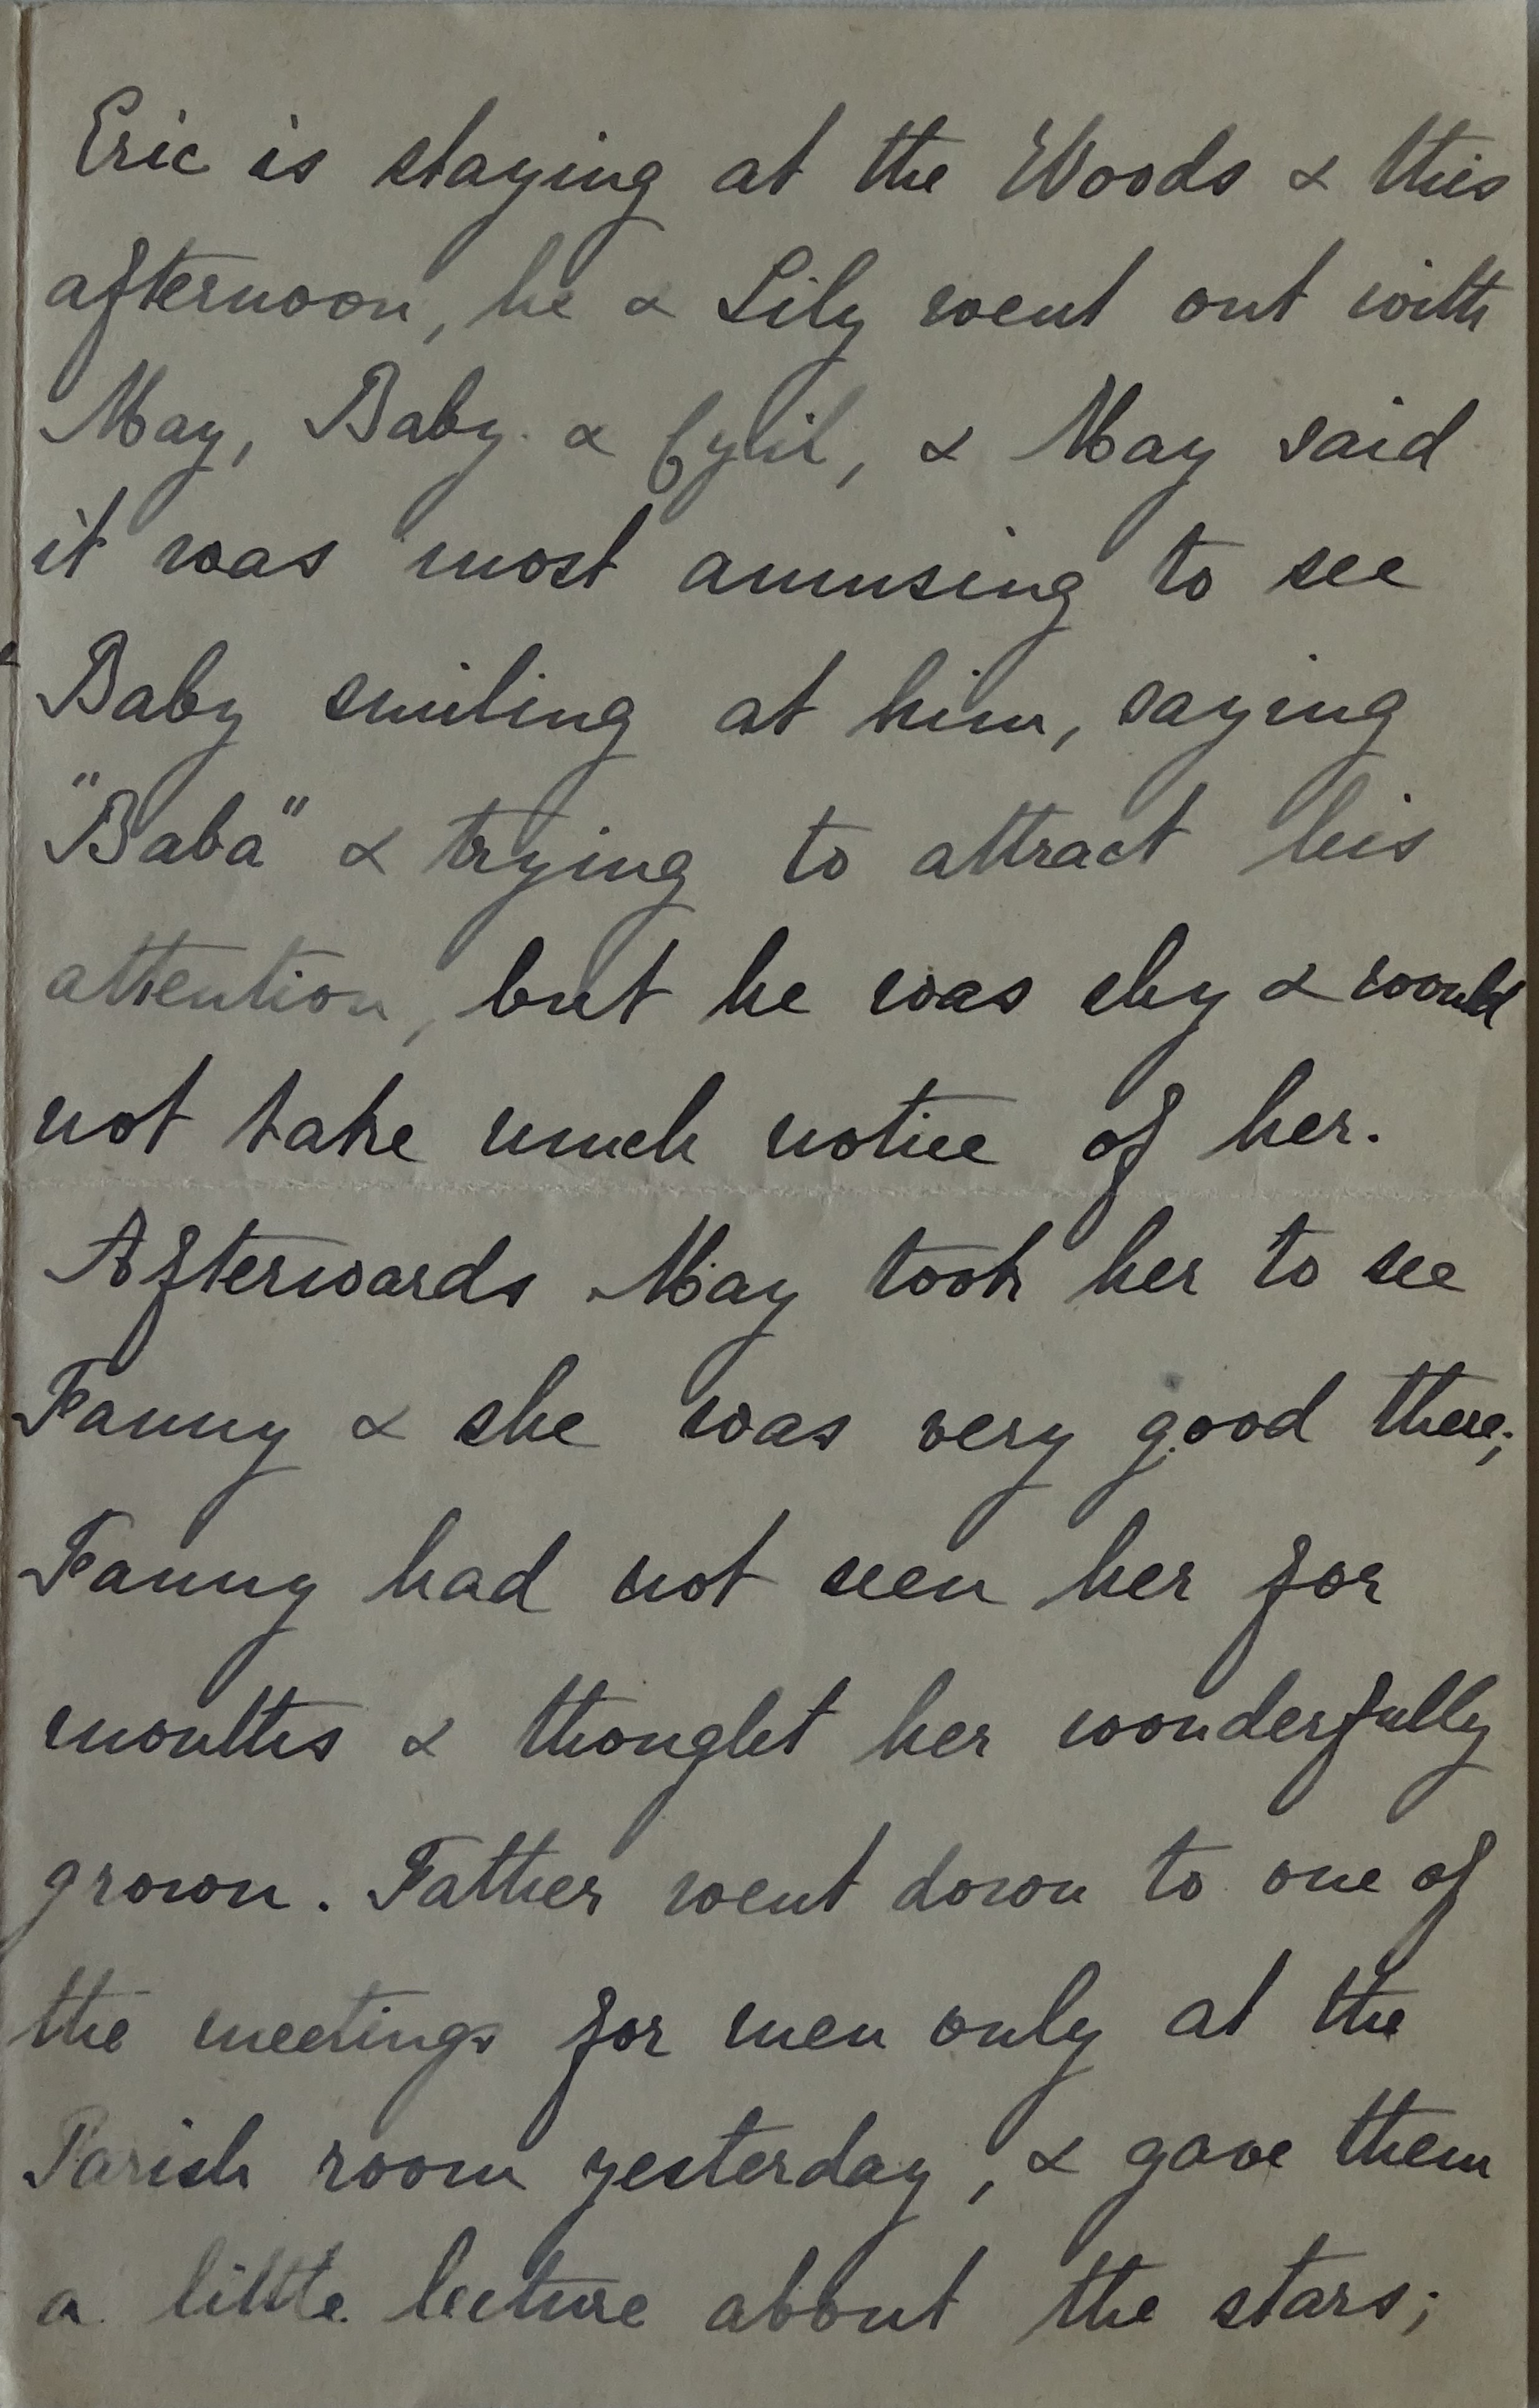 Eric is staying at the Woods & this
afternoon, he & Lily went out with
May, Baby & & May said
it was most amusing to see
Baby smiling at him, saying
"Baba" & trying to attract his
attention, but he was shy & would
not take much notice of her.
Afterwards May took her to see
Fanny & she was very good there;
Fanny had not seen her for
months & thought her wonderfully
grown. Father went down to one of
the meetings for men only at the
Parish room yesterday, & gave them
a little lecture about the stars;